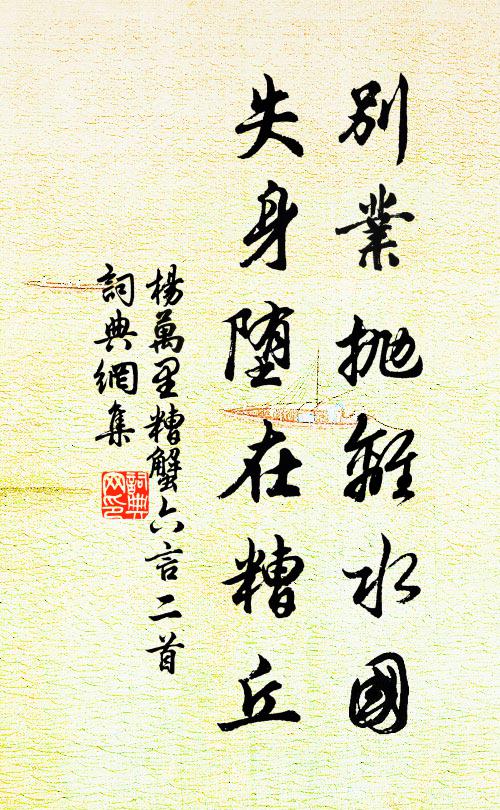 別業抛離水國
失身堕在糟丘
楊萬里糟蟹六言二首
詞典網集
詞典
网印